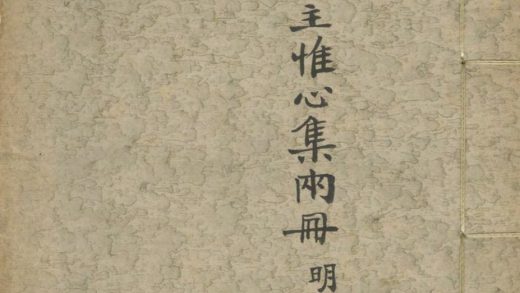 主惟心集兩冊 明